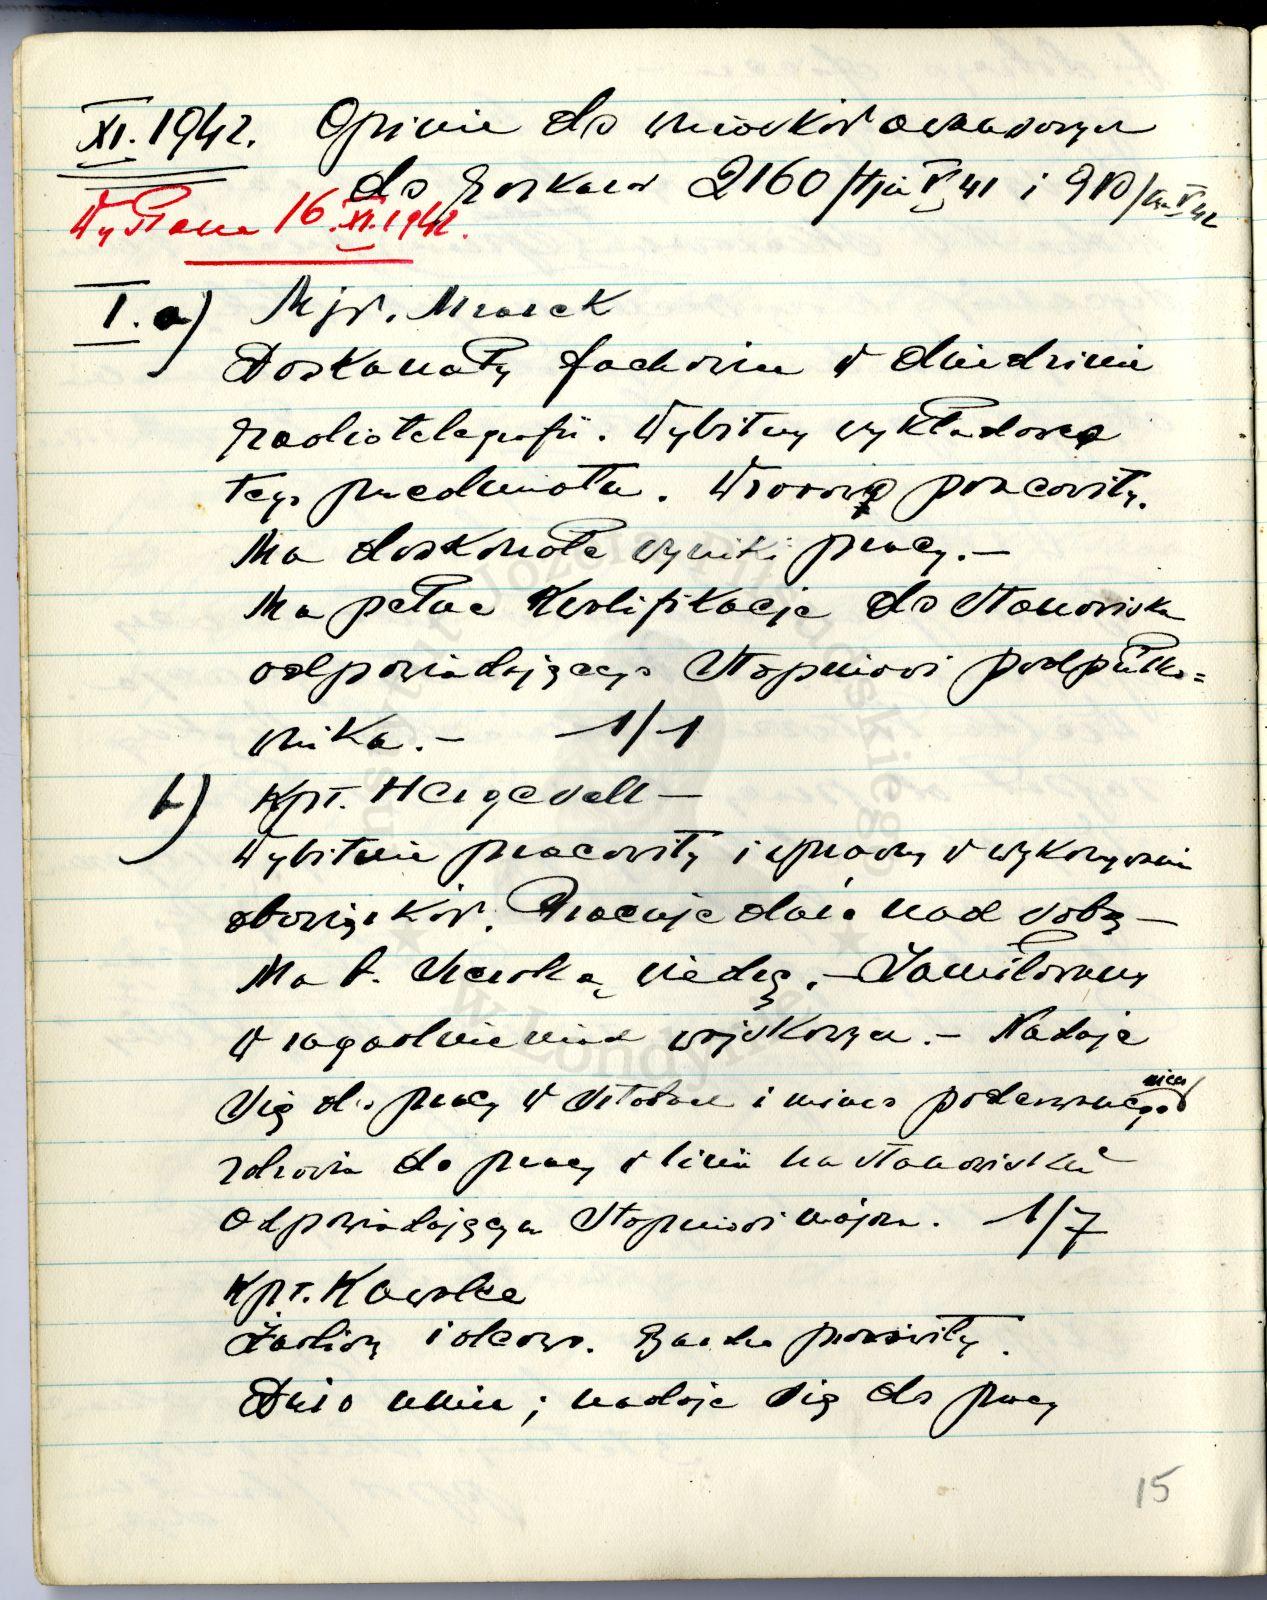 XI. 1942. Opinie do wniosków awansowych
do rozkazu 2160/tjn V 41 i 910/ V 42
Wysłane 16.XI.1942.
I. a) Mjr. Mrazek
Doskonały fachowiec w dziedzinie
radiotelegrafii. Wybitny wykładowca
tego przedmiotu. Wzorowo pracowity.
Ma doskonałe wyniki pracy. –
Ma pełne kwalifikacje do stanowiska
odpowiadającego stopniowi podpułko=
wnika. – 1/1
b) Kpt. –
Wybitnie pracowity i sprawny w wykonywaniu
obowiązków. Pracuje dużo nad sobą –
Ma b. szeroką wiedzę. – Zamiłowany
w zagadnieniach wojskowych. – Nadaje
się do pracy w sztabie i mimo poderwanego nieco
zdrowia do pracy w linii na stanowisku
odpowiadającym stopniowi majora. 1/7
Kpt.
i Bardzo pracowity.
Dużo umie; nadaje się do pracy
15
Józefa Piłsudskiego
w Londynie